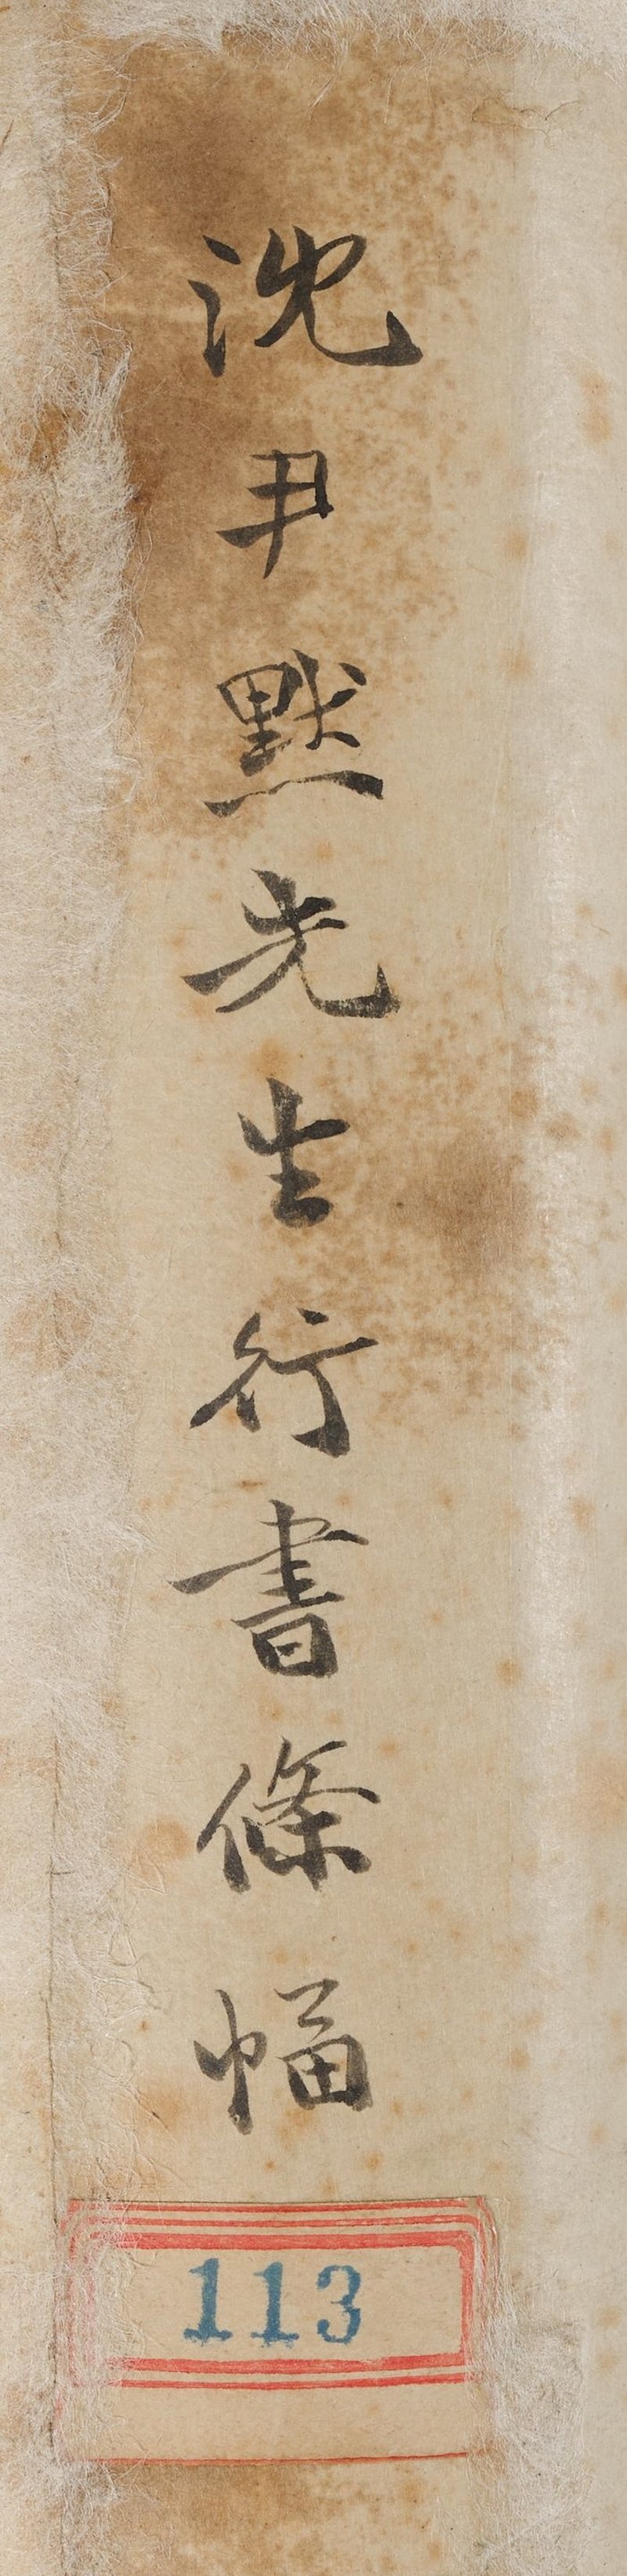 沈尹默先生行書條幅
113